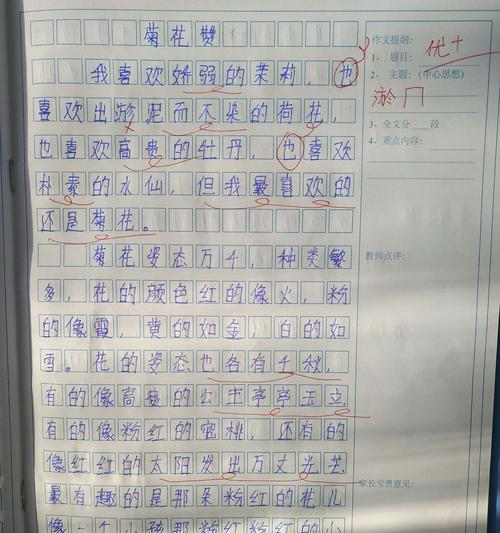 菊花赞
我喜欢娇强的茉莉，也
喜欢出泥而不染的荷花，
也喜欢高贵的牡丹，也喜欢
朴素的水仙，但我最喜欢的
还是菊花。
菊花姿态万千，种类繁
多，花的颜色红的像火，粉
的像霞，黄的如金，白的如
雪。花的姿态也各有千秋，
有的像高贵的公主亭亭玉立，
有的像粉红的密桃，还有的
像红红的太阳发出万丈光芒。
最有趣的是那朵粉红的花儿
像一个小孩那粉红的小
作文提纲：
优+
1、题目：
2、主题：（中心思想）
淤
3、全文分 段
4、重点内容：
教师点评：
家长宝贵意见：